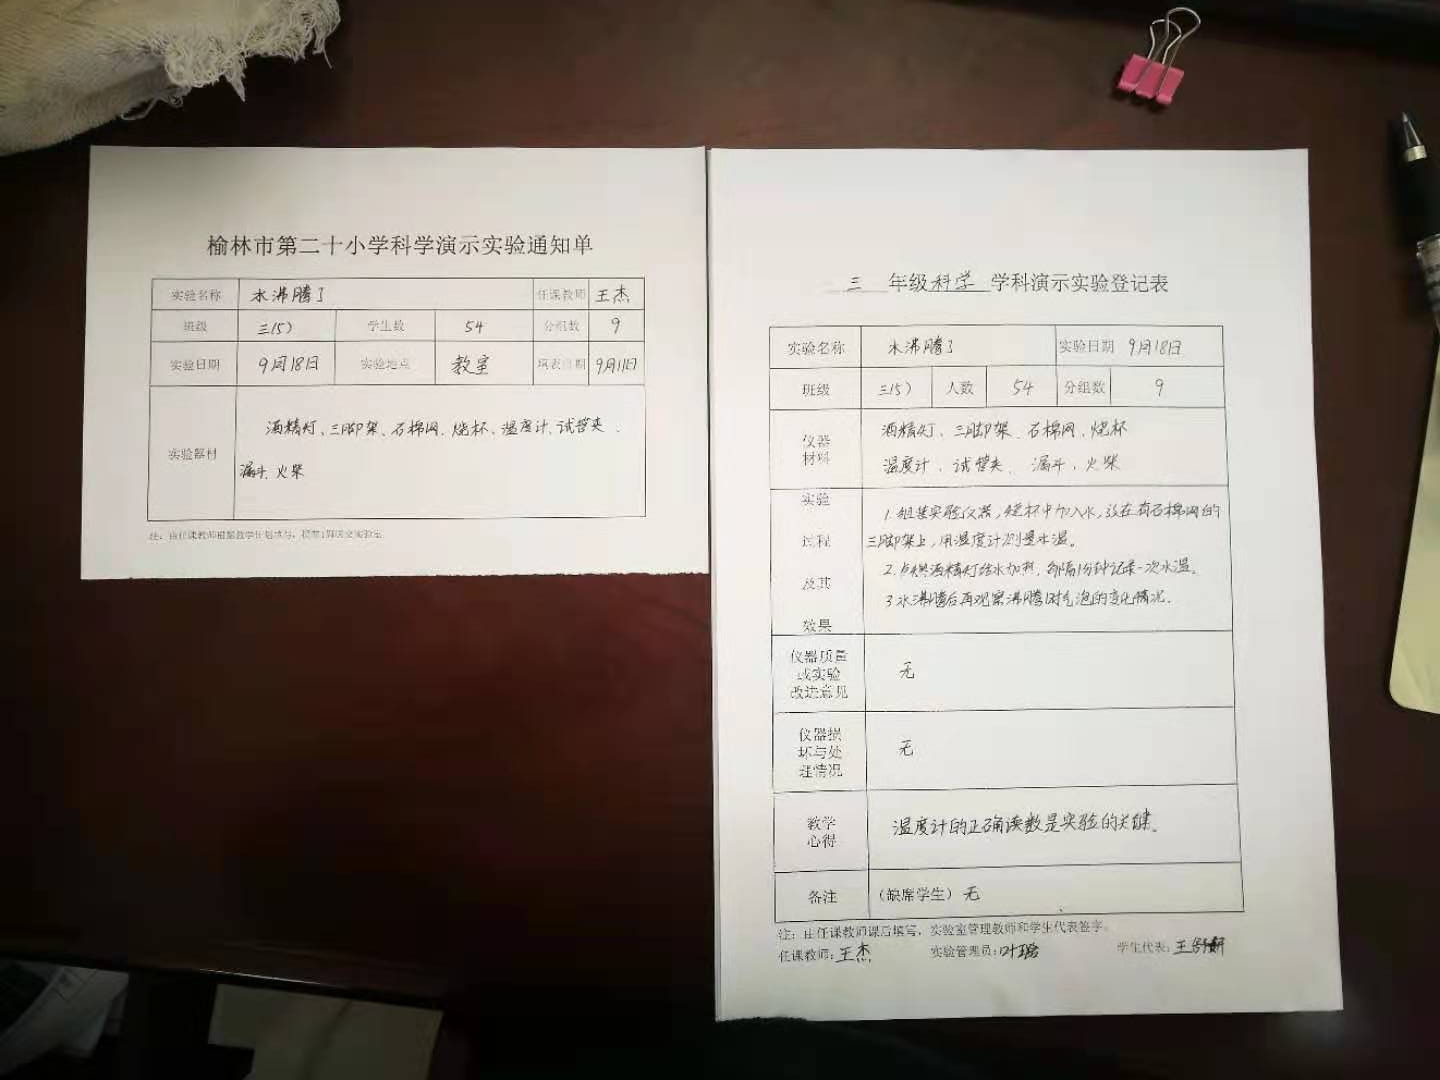 榆林市第二十小学科学演示实验通知单
实验名称 水沸腾了 任课教师 王杰
班级 三(5) 学生数 54 分组数 9
实验日期 9月18日 实验地点 教室 填表日期 9月11日
实验器材
酒精灯、三脚架、石棉网、烧杯、温度计、试管夹、
漏斗、火柴
注:由任课教师根据教学计划填写,
三 年级 科学 学科演示实验登记表
实验名称 水沸腾了 实验日期 9月18日
班级 三(5) 人数 54 分组数 9
仪器
材料
酒精灯、三脚架、石棉网、烧杯
温度计、试管夹、漏斗、火柴
实验
过程
及其
效果
1.组装实验仪器,烧杯中加入水,放在有石棉网的
三脚架上,用温度计测量水温。
2.点燃酒精灯给水加热,每隔1分钟记录一次水温。
3.水沸腾后再观察沸腾时气泡的变化情况.
仪器质量
或实验
改进意见
无
仪器损
坏与处
理情况
无
教学
心得
温度计的正确读数是实验的关键。
备注 (缺席学生)无
注:由任课教师课后填写,实验室管理教师和学生代表签字。
任课教师:王杰 实验管理员:叶 学生代表:王